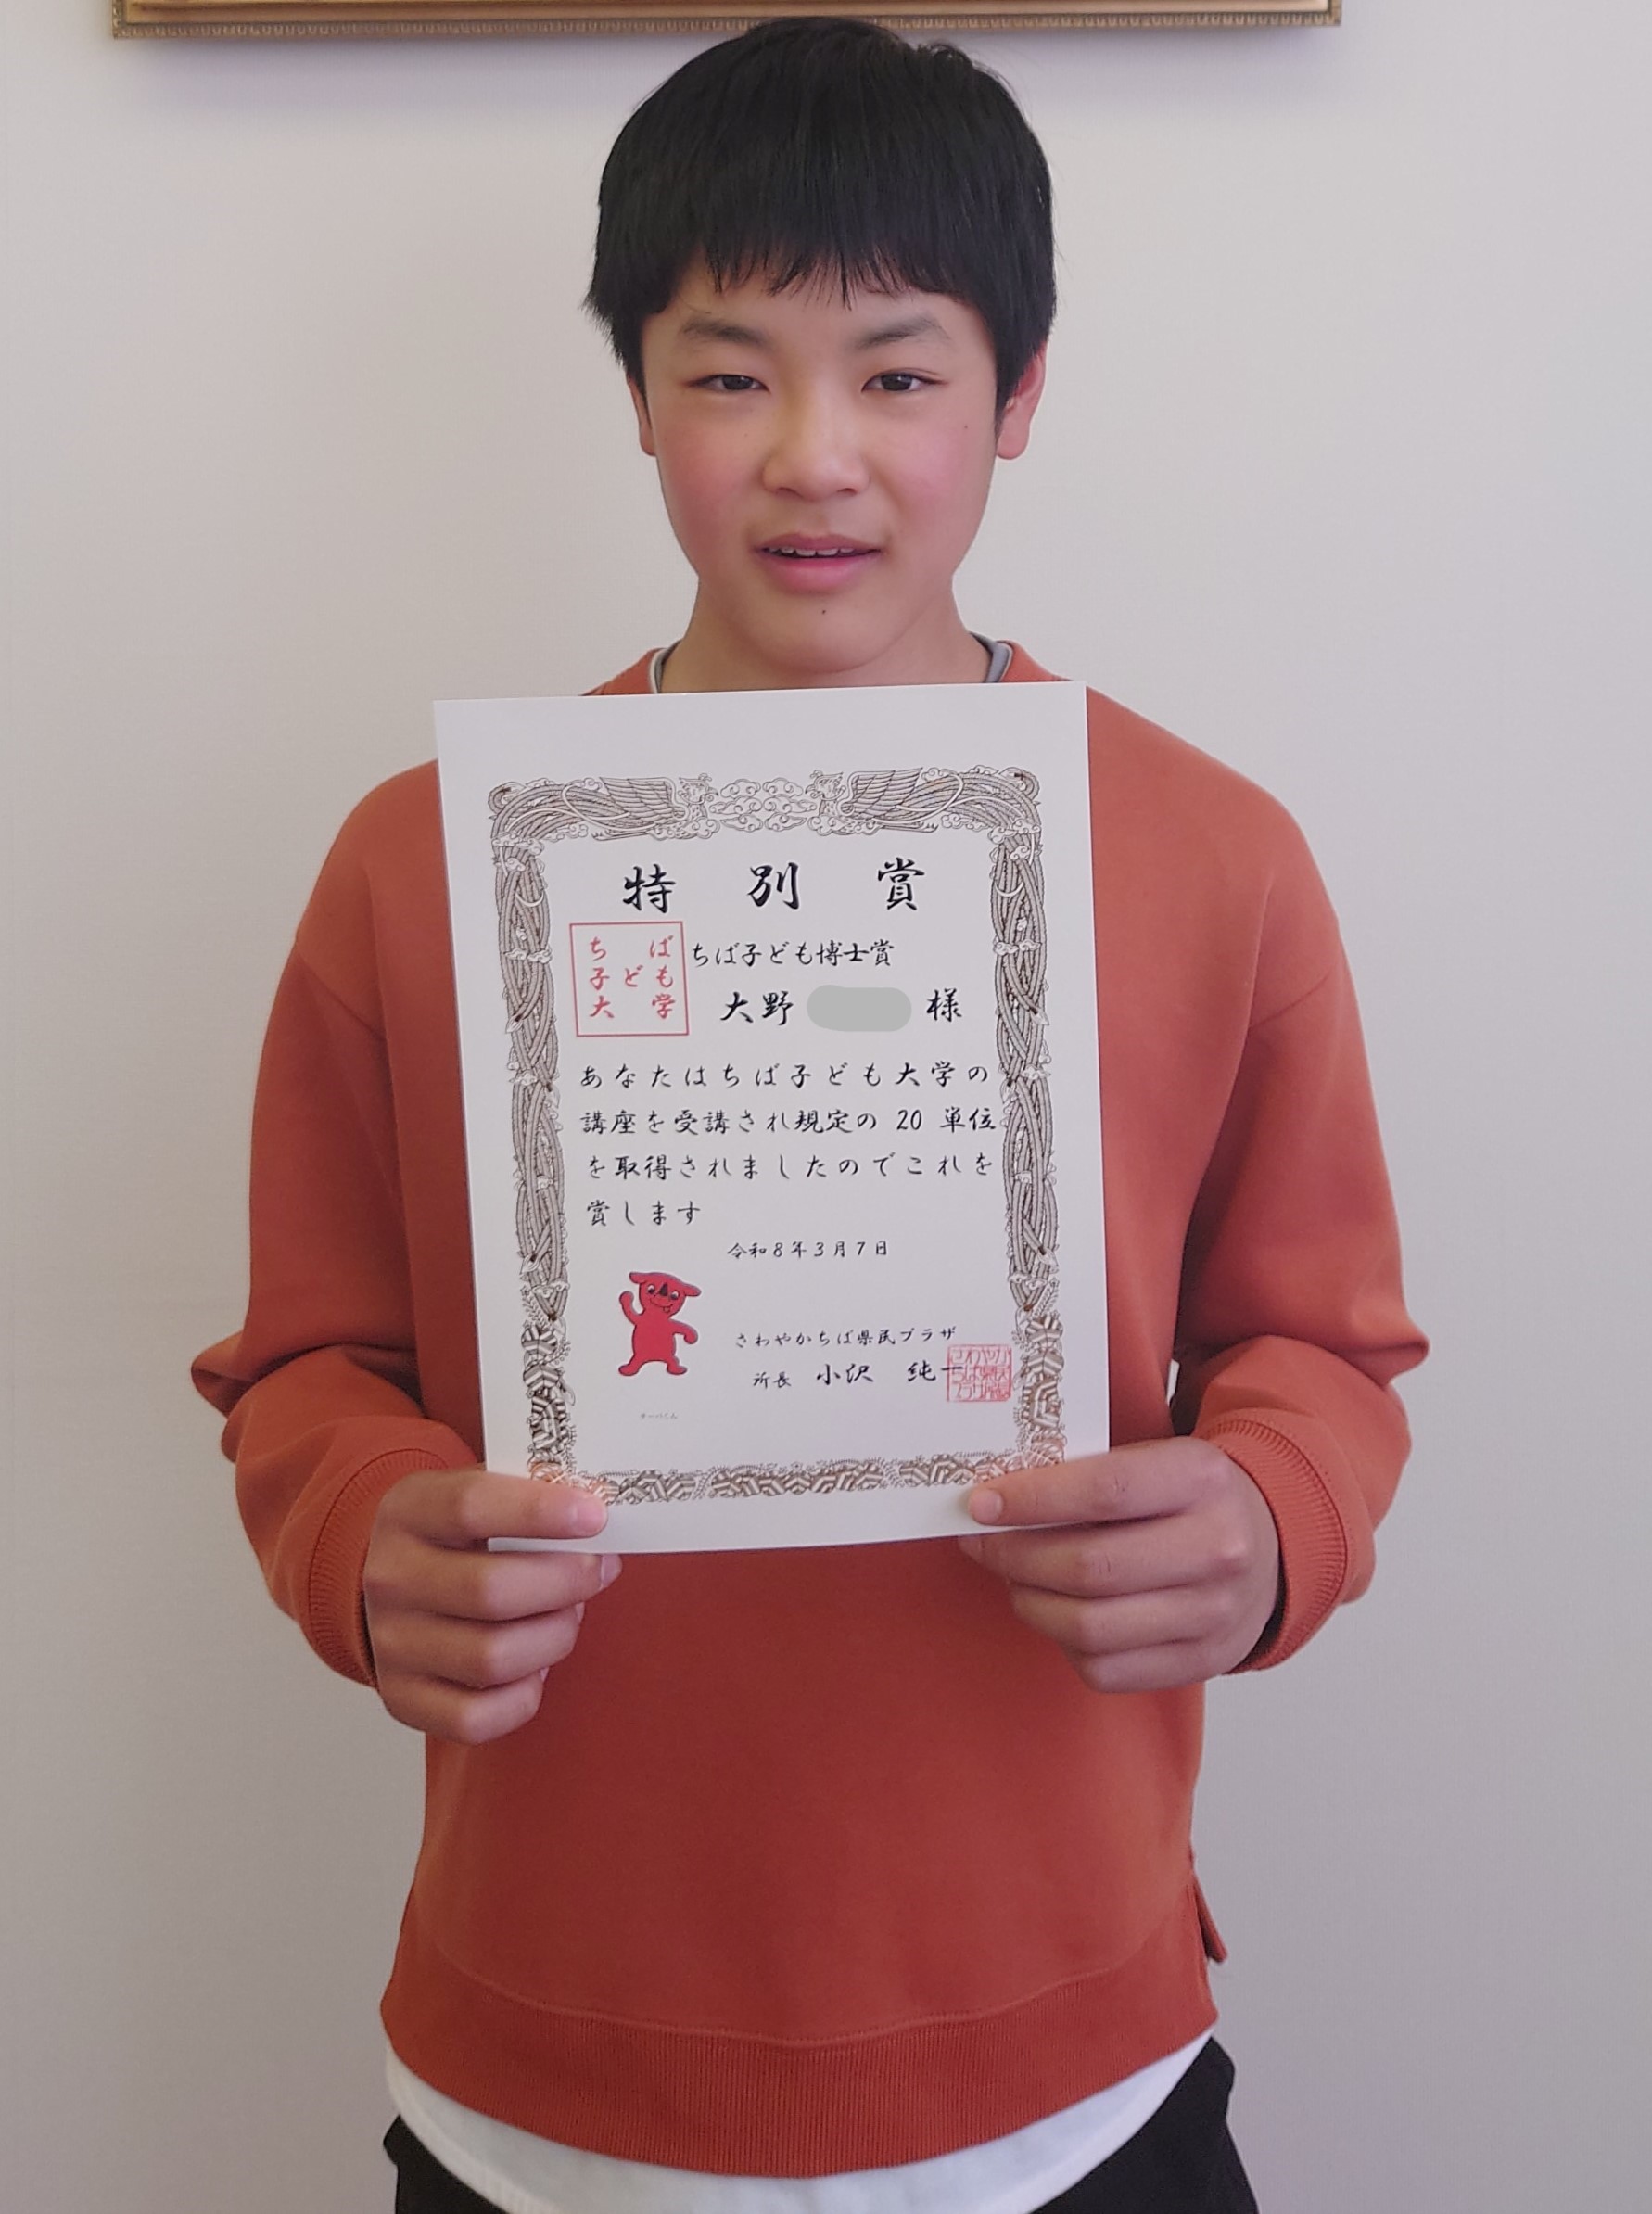 特別賞
ちば
子ども
大学
ちば子ども博士賞
大野 様
あなたはちば子ども大学の
講座を受講され規定の 20 単位
を取得されましたのでこれを
賞します
令和8年3月7日
さわやかちば県民プラザ
所長 小沢 純一
チーバくん